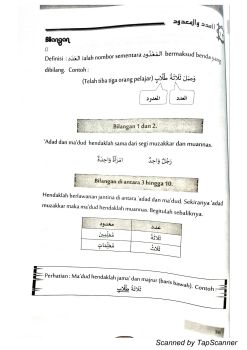 العدد والمعدود
Bilangan
Definisi : العَدَد ialah nombor sementara المَعْدُود bermaksud benda yang
dibilang. Contoh :
وَصَلَ ثَلَاثَةُ طُلَّابٍ
(Telah tiba tiga orang pelajar)
العدد
المعدود
Bilangan 1 dan 2.
'Adad dan ma'dud hendaklah sama dari segi muzakkar dan muannas.
رَجُلٌ وَاحِدٌ
امْرَأَةٌ وَاحِدَةٌ
Bilangan di antara 3 hingga 10.
Hendaklah berlawanan jantina di antara 'adad dan ma'dud. Sekiranya 'adad
muzakkar maka ma'dud hendaklah muannas. Begitulah sebaliknya.
عدد
معدود
ثَلَاثَةُ
مُعَلِّمِينَ
ثَلَاثُ
مُعَلِّمَاتٍ
Perhatian : Ma'dud hendaklah jama' dan majrur (baris bawah). Contoh :
ثَلَاثَةُ طُلَّابٍ
Scanned by TapScanner